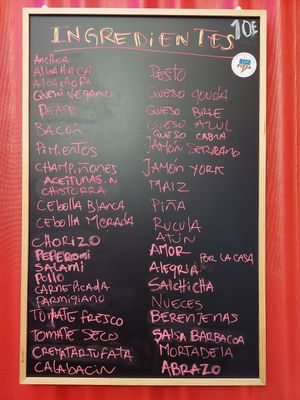 INGREDIENTES 10€
ANCHOA
ALBAHACA
ALCACHOFA
QUESO VEGANO
BACON
PIMIENTOS
CHAMPIÑONES
ACEITUNAS.N
CHISTORRA
CEBOLLA BLANCA
CEBOLLA MORADA
CHORIZO
PEPERONI
SALAMI
POLLO
CARNE PICADA
PARMIGIANO
TOMATE FRESCO
TOMATE SECO
CREMA TARTUFATA
CALABACIN
PESTO
QUESO GOUDA
QUESO BRIE
QUESO AZUL
QUESO CABRA
JAMÓN SERRANO
JAMÓN YORK
MAIZ
PIÑA
RUCULA
ATÚN
AMOR
POR LA CASA
ALEGRIA
SALCHICHA
NUECES
BERENJENAS
SALSA BARBACOA
MORTADELA
ABRAZO